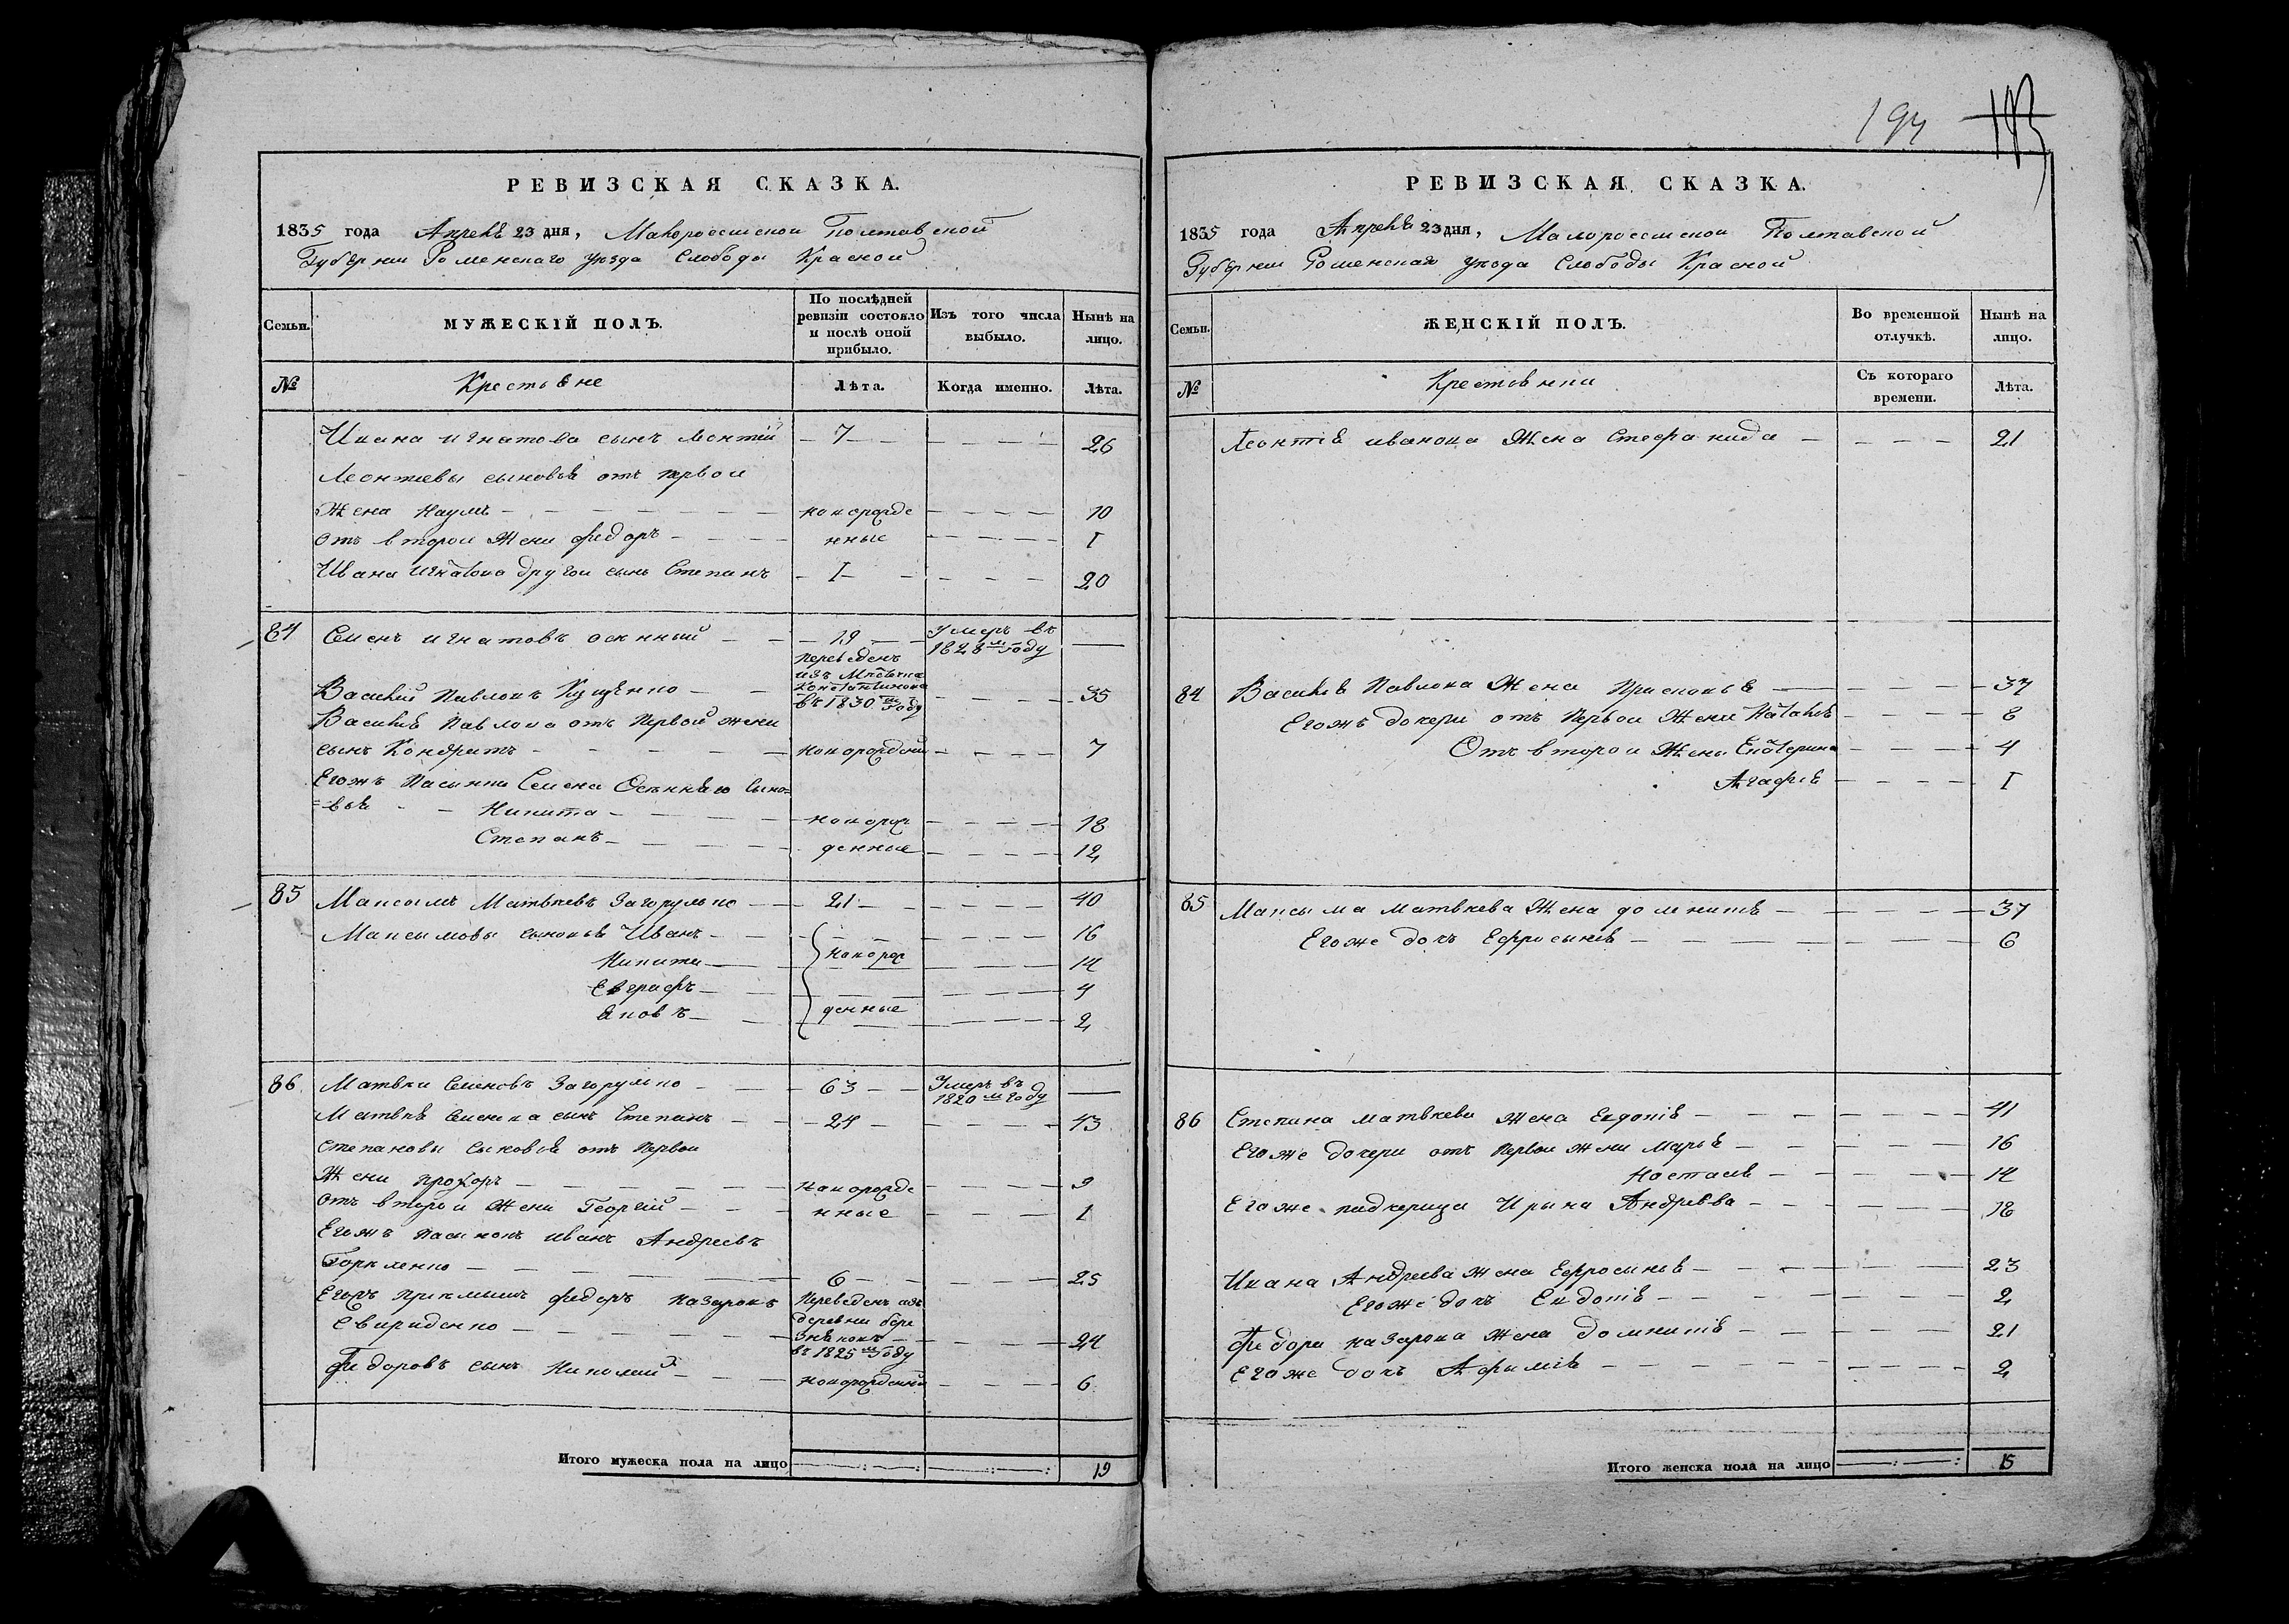 194 193
РЕВИЗСКАЯ СКАЗКА.
1835 года Апреля 23 дня, Малороссийской Полтавской
Губернии Роменскаго уезда Слободы Красной
Семьи. МУЖЕСКІЙ ПОЛЪ. По послѣдней ревизіи состояло и послѣ оной прибыло. Изъ того числа выбыло. Нынѣ на лицо.
№ Крестьяне Лѣта. Когда именно. Лѣта.
Ивана Игнатова сынъ Леонтий 7 26
Леонтиевы сыновья отъ первой
жены Наумъ новорожде 10
отъ второи жени Федоръ нные 1
Ивана Игнатова другои сынъ Степанъ 1 20
84 Семенъ Игнатовъ 19 Умеръ въ 1828м году
Василий Павловъ переведенъ изъ Константинова въ 1830м году 35
Василия Павлова отъ первой жени
сынъ Кондратъ новорожденний 7
Егожъ пасынки Семена сыно=
=вья Никита новорож 18
Степанъ денные 12
85 Максымъ Матвеевъ Загорулько 21 40
Максымовы сыновья Иванъ 16
Никита новорож 14
Евграфъ 4
Яковъ денные 2
86 Матвеи Семеновъ Загорулько 63 Умеръ въ 1820м году
Матвея Семенова сынъ Степанъ 24 43
Степановы сыновья отъ первои
жени Прохоръ новорожде 9
отъ второи жени Георгий нные 1
Егожъ пасынокъ Иванъ Андреевъ
6 25
Егожъ приемышъ Федоръ Назаровъ переведенъ изъ
Свириденко деревни въ 1825м году 24
Федоровъ сынъ Николай новорожденний 6
Итого мужеска пола на лицо 19
РЕВИЗСКАЯ СКАЗКА.
1835 года Апреля 23 дня, Малороссийской Полтавской
Губернии Роменскаго уезда Слободы Красной
Семьи. ЖЕНСКІЙ ПОЛЪ. Во временной отлучкѣ. Нынѣ на лицо.
№ Крестьянки Съ котораго времени. Лѣта.
Леонтия Иванова жена Стефанида 21
84 Василия Павлова жена Присковья 37
Егожъ дочери отъ первои жени Наталия 8
Отъ второи жены Екатерина 4
Агафия 1
85 Максыма Матвеева жена Доменикия 37
Егоже дочъ Ефросыния 6
86 Степана Матвеева жена Евдокия 41
Егоже дочери отъ первои жени Марья 16
Настасия 14
Егоже падчерица Ирына Андреева 18
Ивана Андреева жена Ефросыния 23
Егоже дочъ Евдокия 2
Федора Назарова жена Домникия 21
Егоже дочъ Афимия 2
Итого женска пола на лицо 15